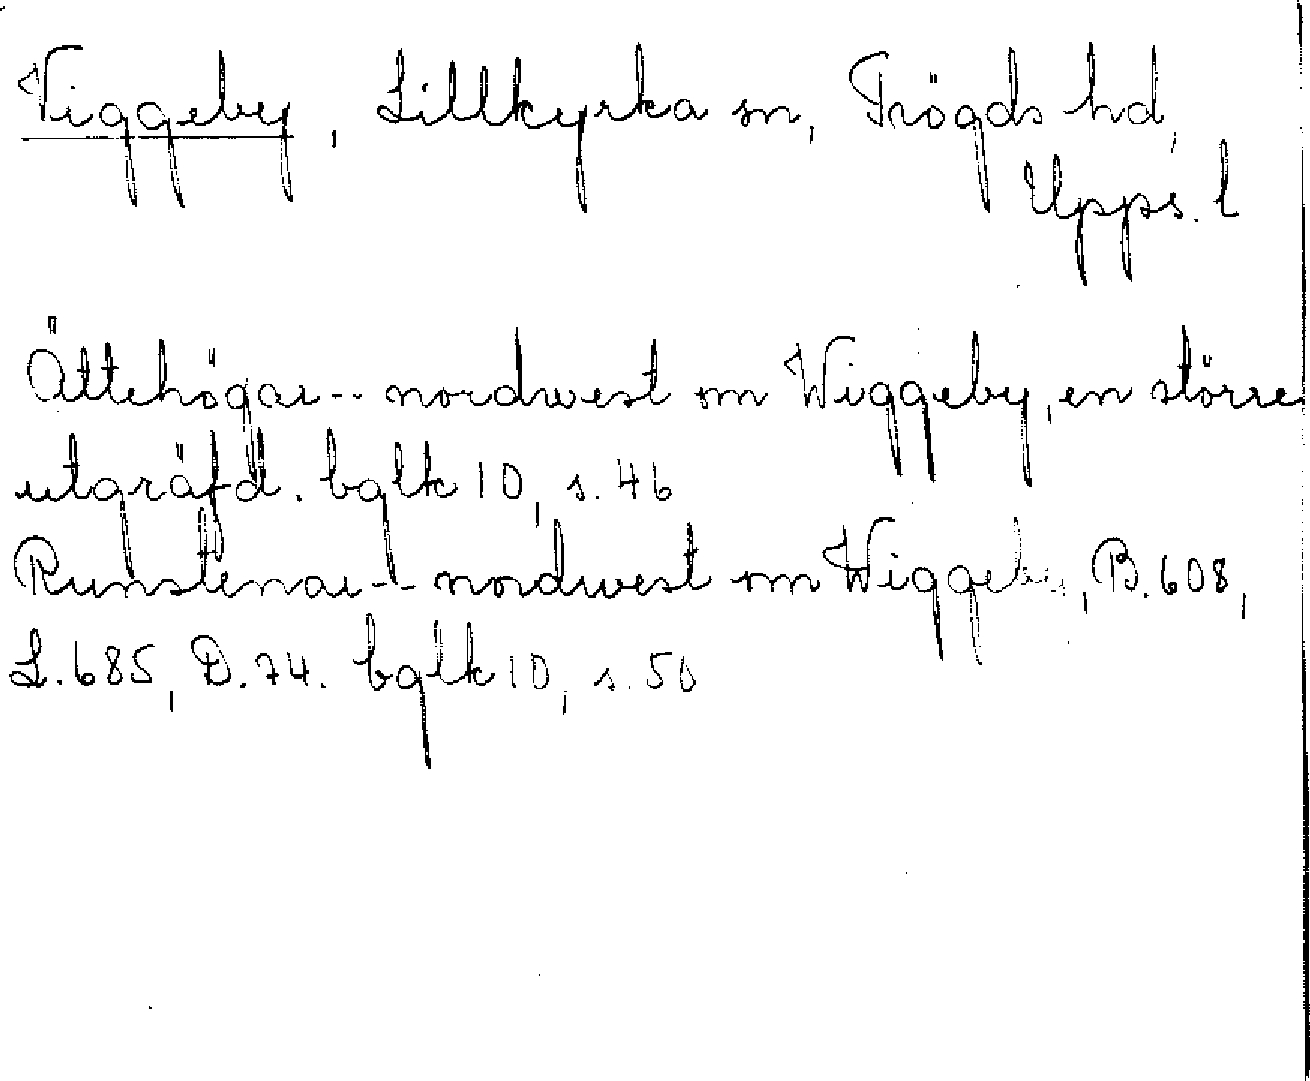 Viggeby, Lillkyrka sn, Trögds hd,
Upps. l
Ättehögar -- nordwest om Wiggeby, en större
utgräfd. bglk 10, s. 46
Runstenar -- nordwest om Wiggeby, B. 608,
L. 685, D. 74. bglk 10, s. 50